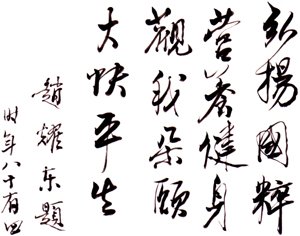 弘揚國粹
營養健身
觀我朵頤
大快平生
趙耀東題
時年八十有四